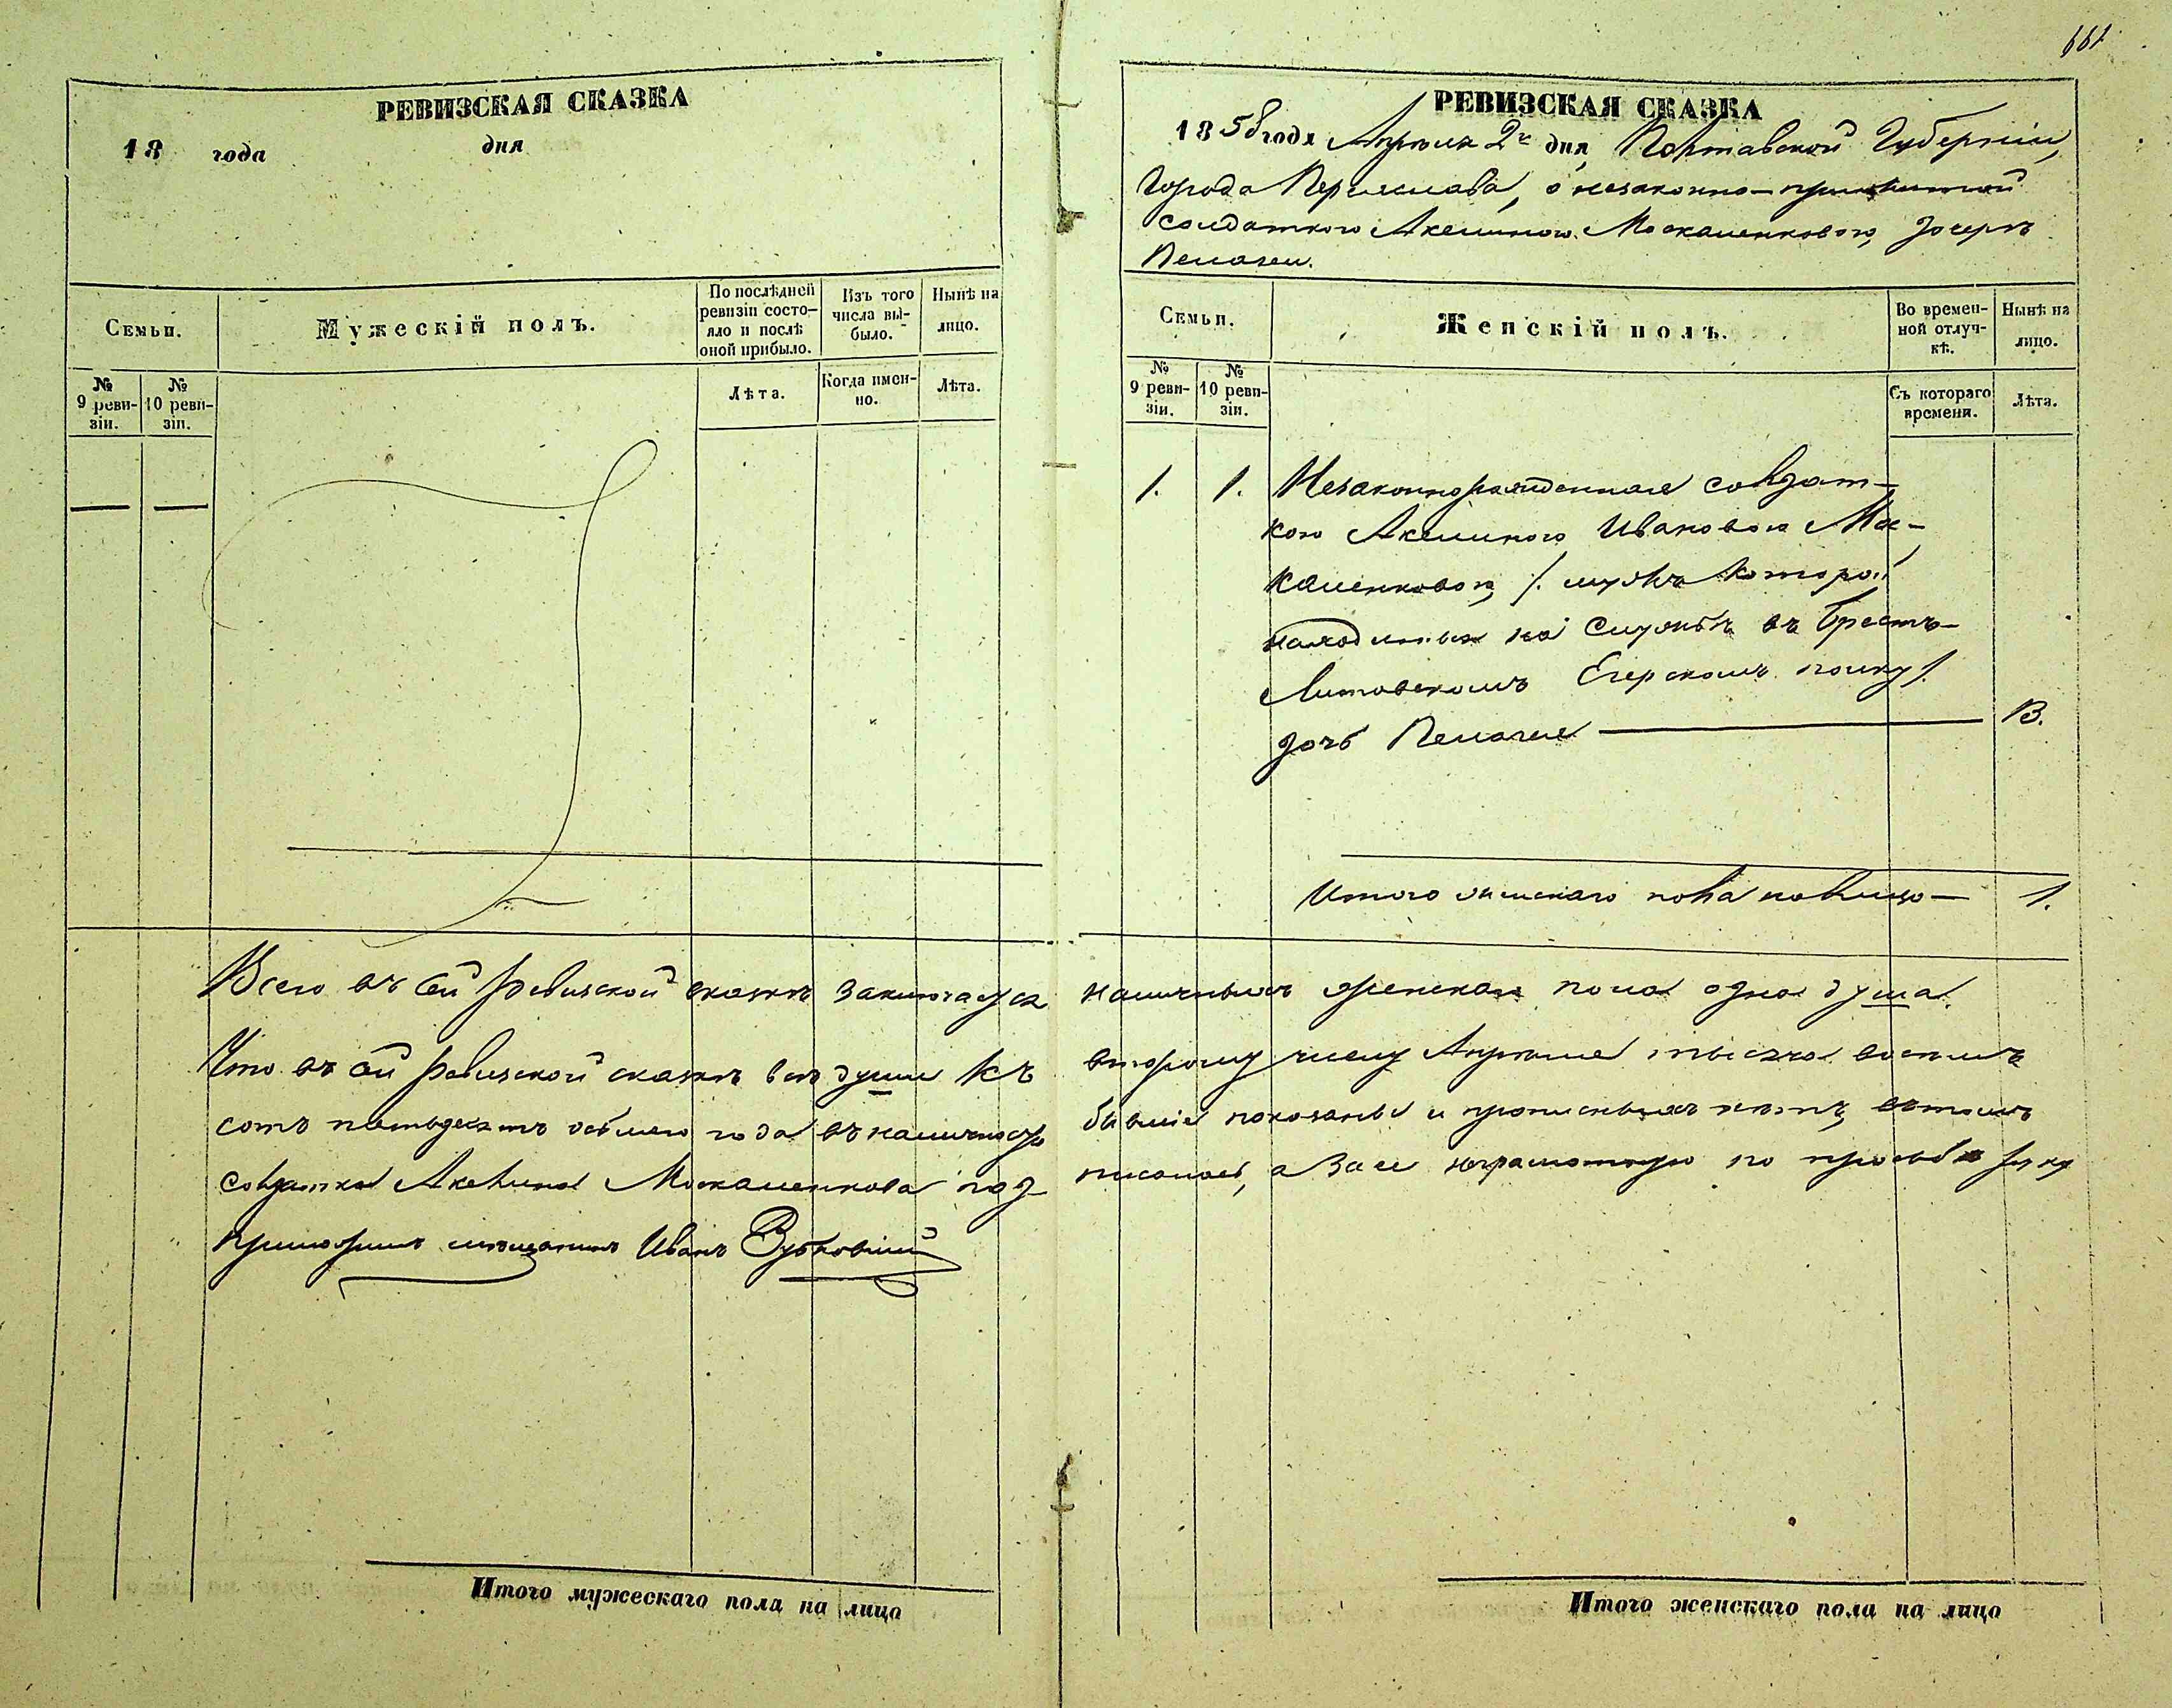 661
РЕВИЗСКАЯ СКАЗКА
18 года дня
Семьи.
Мужескій полъ.
По послѣдней ревизіи состо-
яло и послѣ оной прибыло.
Изъ того числа вы-
было.
Нынѣ на лицо.
№ 9 реви-
зіи.
№ 10 реви-
зіи.
Лѣта.
Когда имен-
но.
Лѣта.
РЕВИЗСКАЯ СКАЗКА
1858 года Апрѣля 2 дня, Полтавской Губерніи,
Города Переяслава, о незаконно-прижитой
солдаткою Акелиною Москаленковою, дочерѣ
Пелагеи.
Семьи.
Женскій полъ.
Во времен-
ной отлуч-
кѣ.
Нынѣ на лицо.
№ 9 реви-
зіи.
№ 10 реви-
зіи.
Съ котораго времени.
Лѣта.
1. 1. Незаконнорожденная солдат-
кою Акелиною Ивановою Мос-
каленковою /. мужъ которой
находится на Службѣ въ Брестъ-
Литовскомъ Егерскомъ полку /.
дочь Пелагея — 13.
Итого женскаго пола налицо — 1.
Всего въ сей ревизской сказкѣ заключается наличныхъ женскаго пола одна душа.
Что въ сей ревизской сказкѣ всѣ души къ второму числу Апрѣля тысяча восемь
сотъ пятьдесятъ осьмаго года въ наличности бывшіе показаны и прописныхъ нѣтъ, въ томъ
солдатка Акелина Москаленкова под-
писалась, а за ее неграмотную по просьбѣ руку
приложилъ мѣщанинъ Иванъ
Итого мужескаго пола на лицо
Итого женскаго пола на лицо